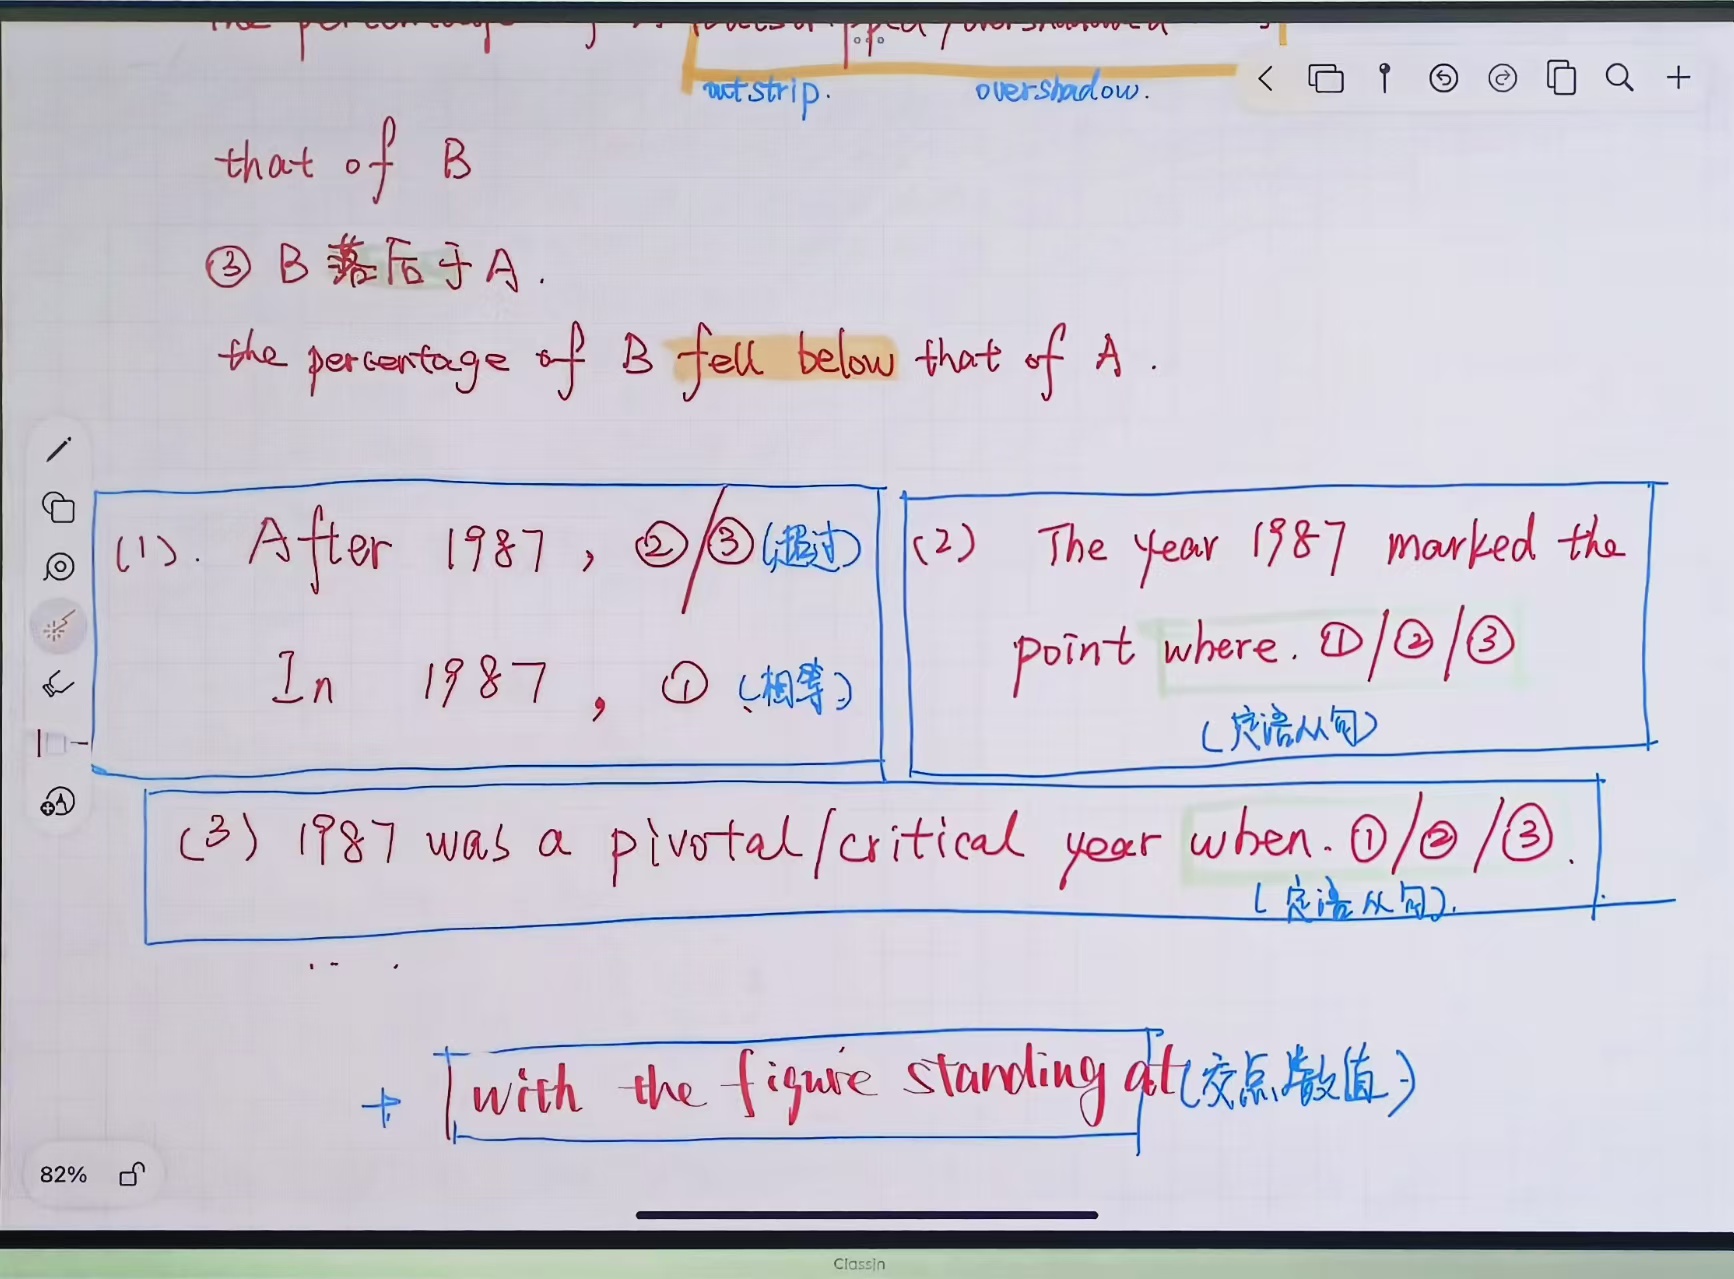 the percentage of outstripped/overshadowed
outstrip. overshadow.
that of B
③ B 落后于 A.
the percentage of B fell below that of A.
(1). After 1987, ②/③ (超过)
In 1987, ① (相等)
(2) The year 1987 marked the
point where. ①/②/③
(定语从句)
(3) 1987 was a pivotal/critical year when. ①/②/③.
(定语从句).
+ with the figure standing at (交点数值)
82%
ClassIn